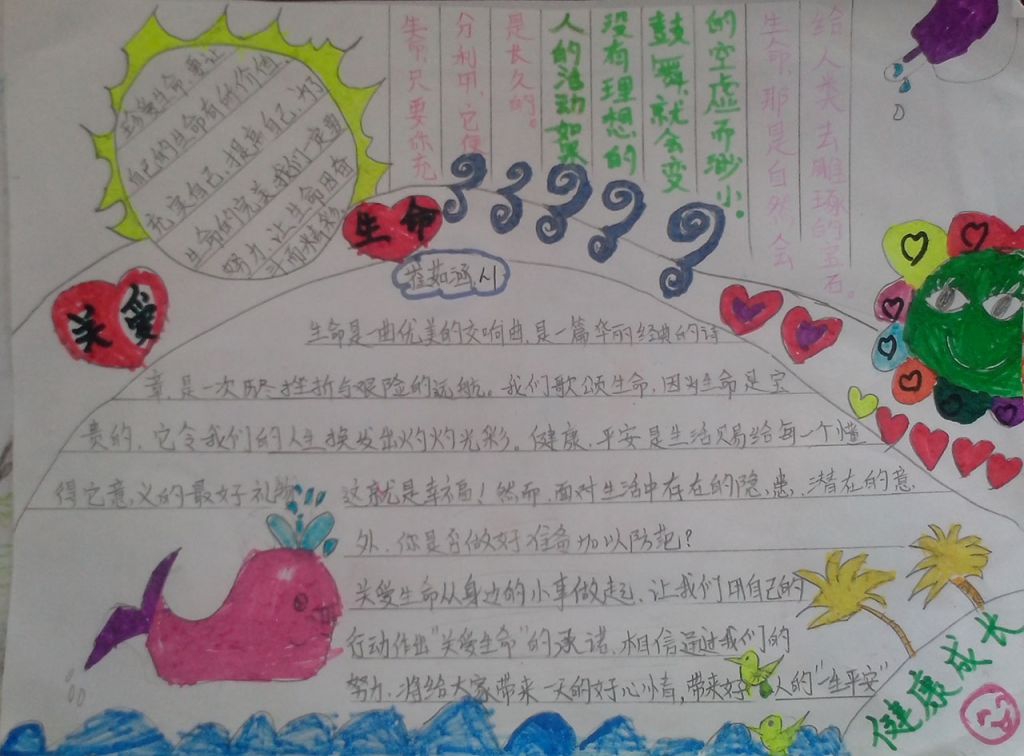 珍爱生命，要让
自己的生命有所价值。
充实自己，提高自己，为
生命的完美，我们一定要
努力，让生命因奋
斗而精彩。
生命，只要你充
分利用，它便
是长久的。
人的活动如果
没有理想的
鼓舞，就会变
的空虚而渺小。
生命，那是自然会
给人类去雕琢的宝石。
关爱
生命
崔茹涵
生命是一曲优美的交响曲，是一篇华丽经典的诗
章，是一次历尽挫折与艰险的远航。我们歌颂生命，因为生命是宝
贵的，它令我们的人生焕发出灼灼光彩。健康、平安是生活赐给每一个懂
得它意义的最好礼物 这就是幸福！然而，面对生活中存在的隐患，潜在的意
外，你是否做好准备加以防范？
关爱生命从身边的小事做起，让我们用自己的
行动作出“关爱生命”的承诺，相信通过我们的
努力，将给大家带来一天的好心情，带来好人的“一生平安”
健康成长